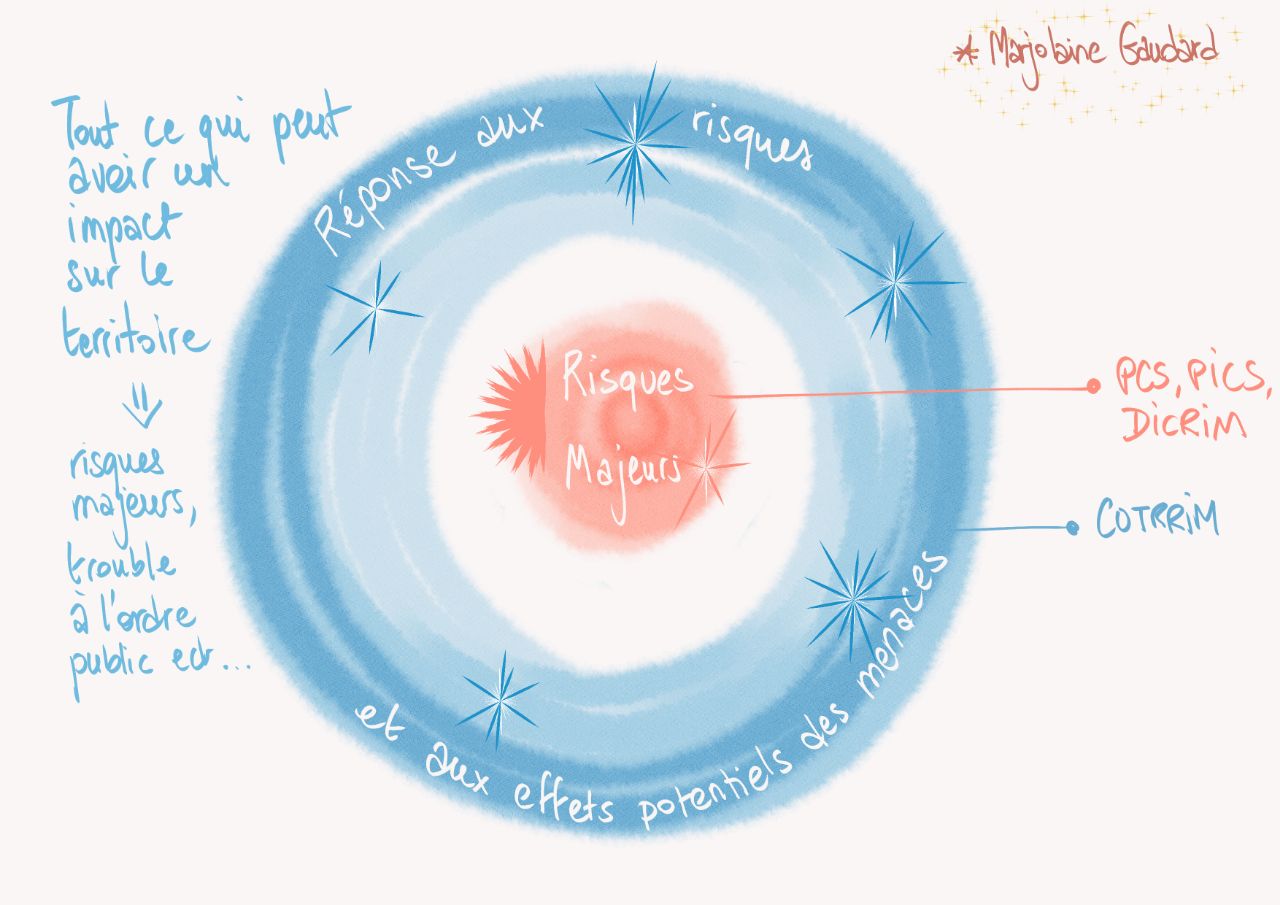 * Marjolaine Gaudard
Tout ce qui peut
avoir un
impact
sur le
territoire
risques
majeurs,
trouble
à l'ordre
public ect...
Réponse aux risques
et aux effets potentiels des menaces
Risques
Majeurs
PCS, PiCS,
DiCRiM
COTRRiM